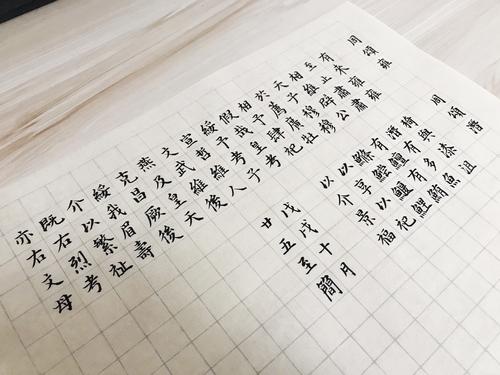 周頌 雍
有來雍雍
至止肅肅
相維辟公
天子穆穆
於薦廣牡
相予肆祀
假哉皇考
綏予孝子
宣哲維人
文武維後
燕及皇天
克昌厥後
綏我眉壽
介以繁祉
既右烈考
亦右文母
周頌 潛
猗與漆沮
潛有多魚
有鱣有鮪
鰷鱨鰋鯉
以享以祀
以介景福
戊戌十月
廿五至簡